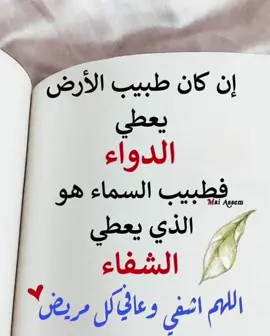 إن كان طبيب الأرض
يعطي
الدواء
فطبيب السماء هو
Mai Assem
الذي يعطي
الشفاء
اللهم اشفي وعافي كل مريض